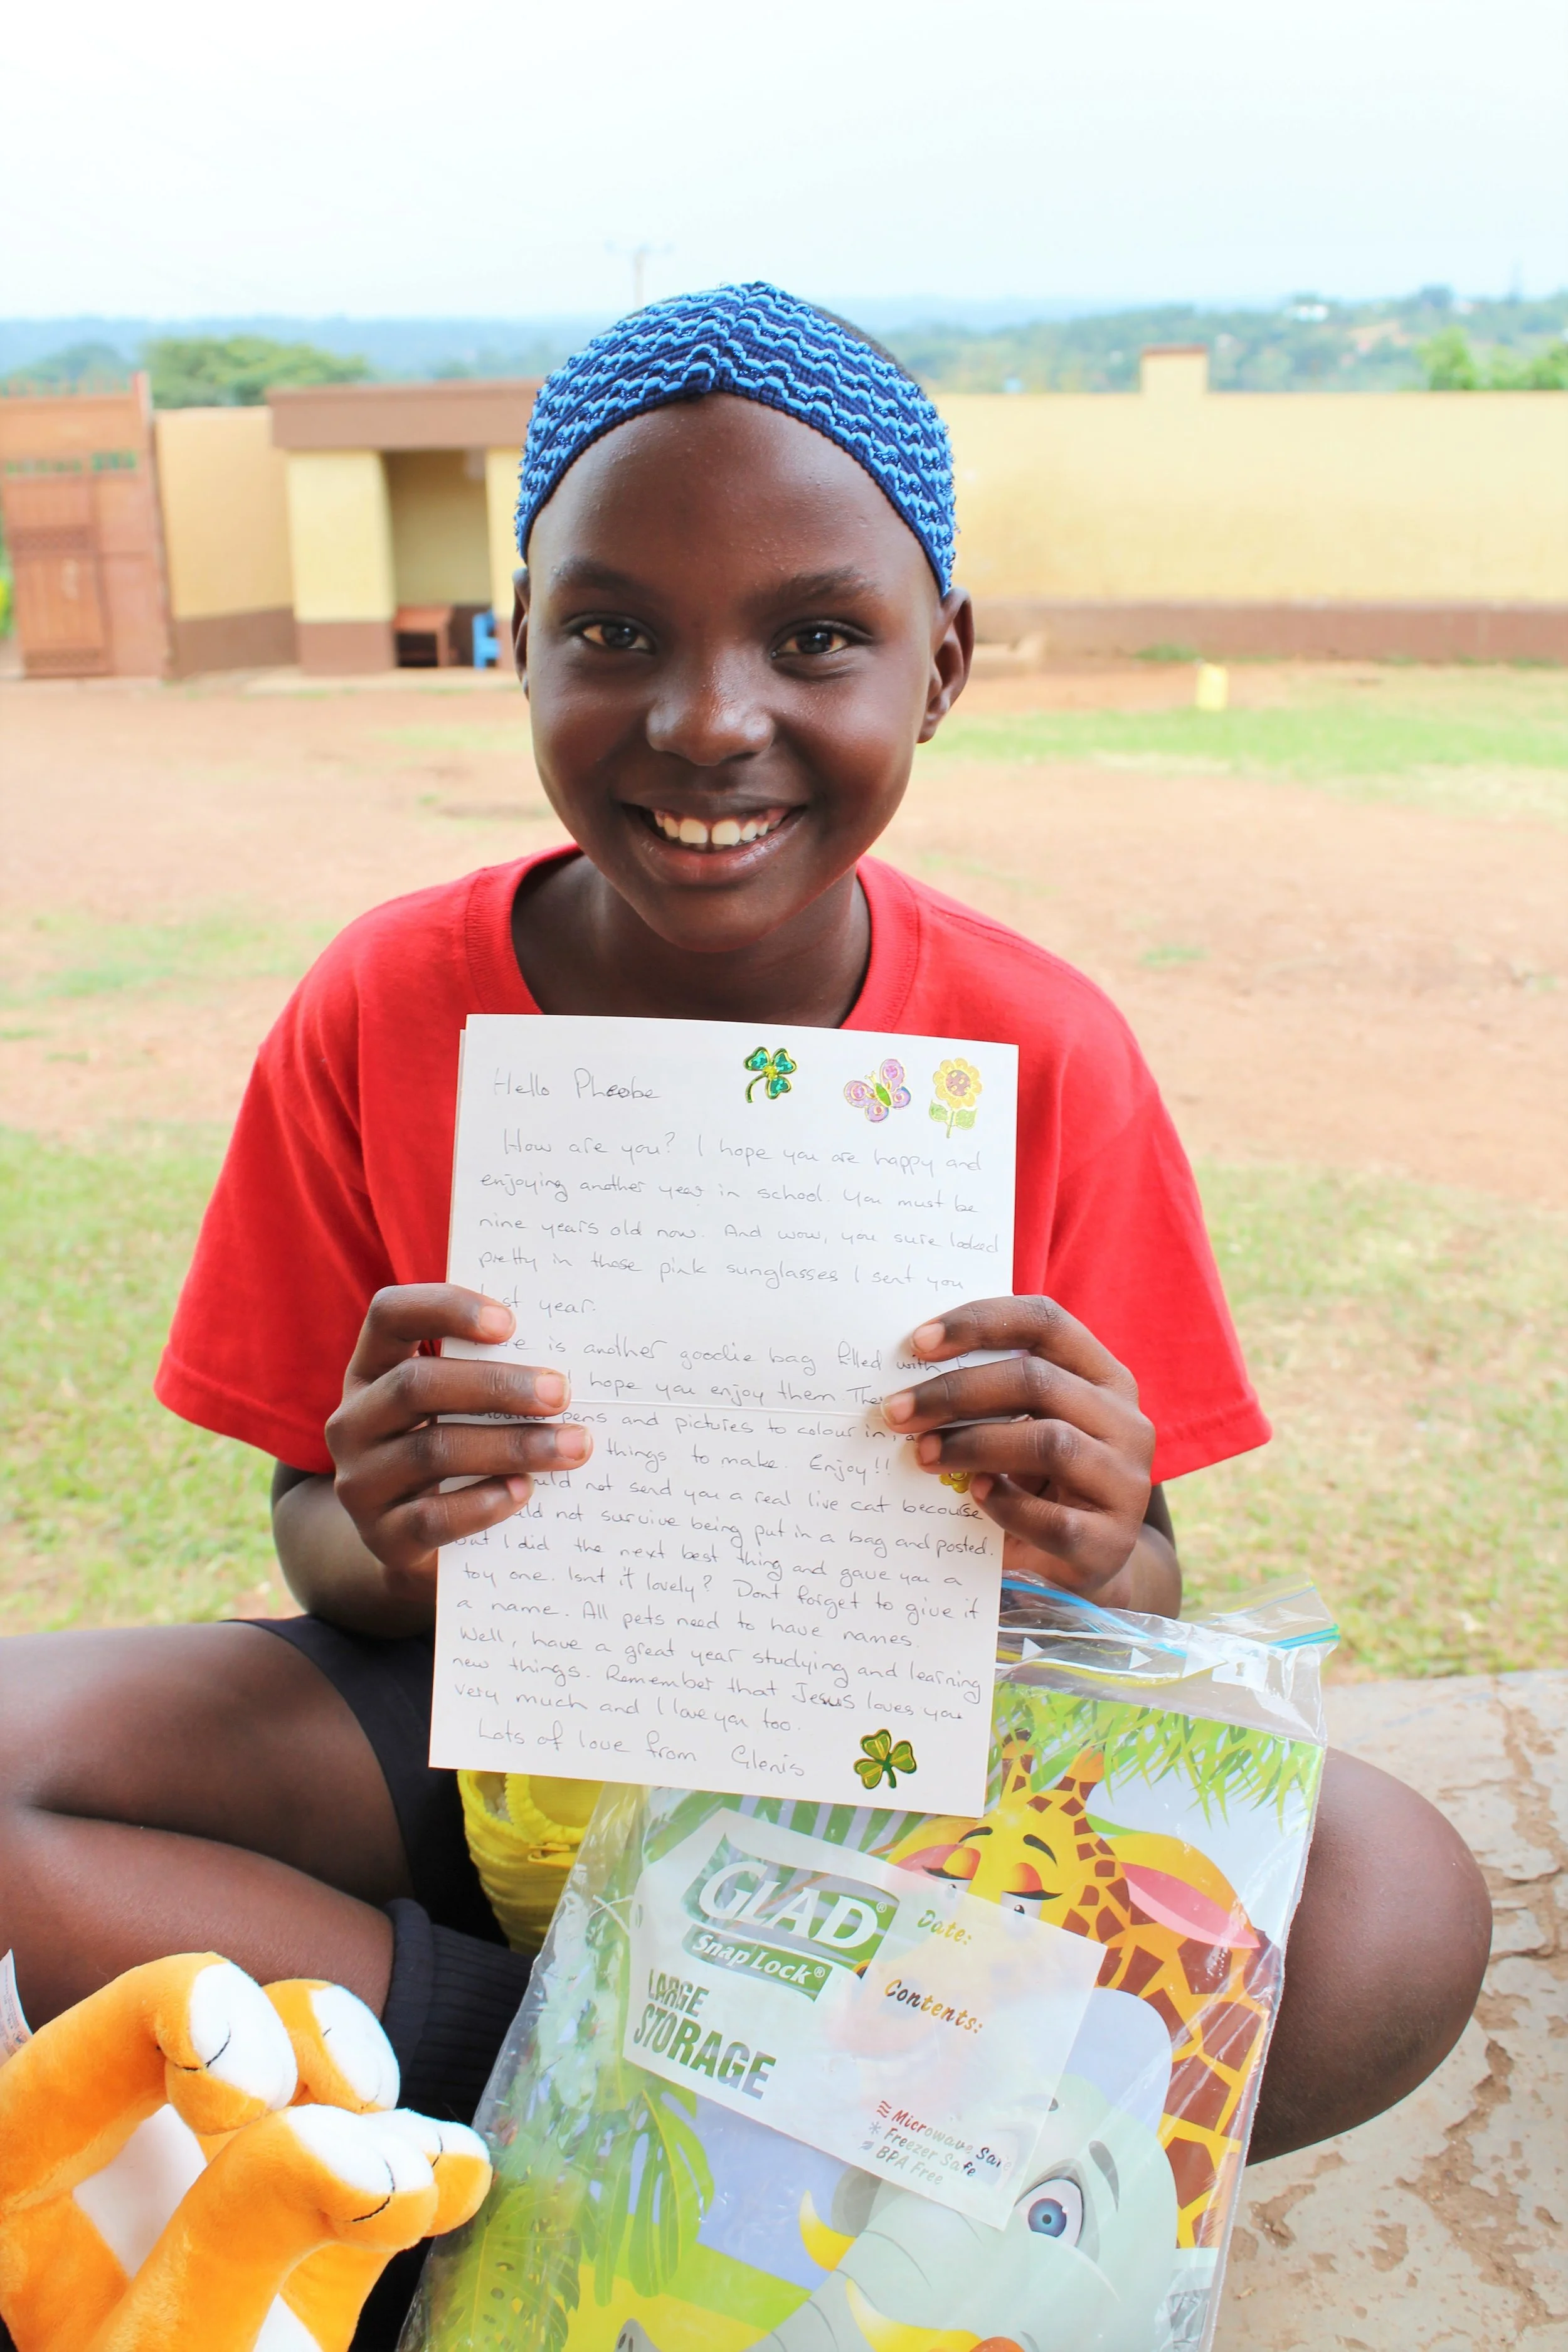 Hello Pheobe
How are you? I hope you are happy and
enjoying another year in school. You must be
nine years old now. And wow, you sure looked
pretty in those pink sunglasses I sent you
last year.
is another goodie bag filled with
I hope you enjoy them
pens and pictures to colour in,
things to make. Enjoy!!
not send you a real live cat becouse
not survive being put in a bag and posted.
but I did the next best thing and gave you a
toy one. Isnt it lovely? Dont forget to give it
a name. All pets need to have names.
Well, have a great year studying and learning
new things. Remember that Jesus loves you
very much and I love you too.
Lots of love from Glenis
GLAD®
Snap Lock®
LARGE
STORAGE
Date:
Contents:
Microwave Safe
Freezer Safe
BPA Free